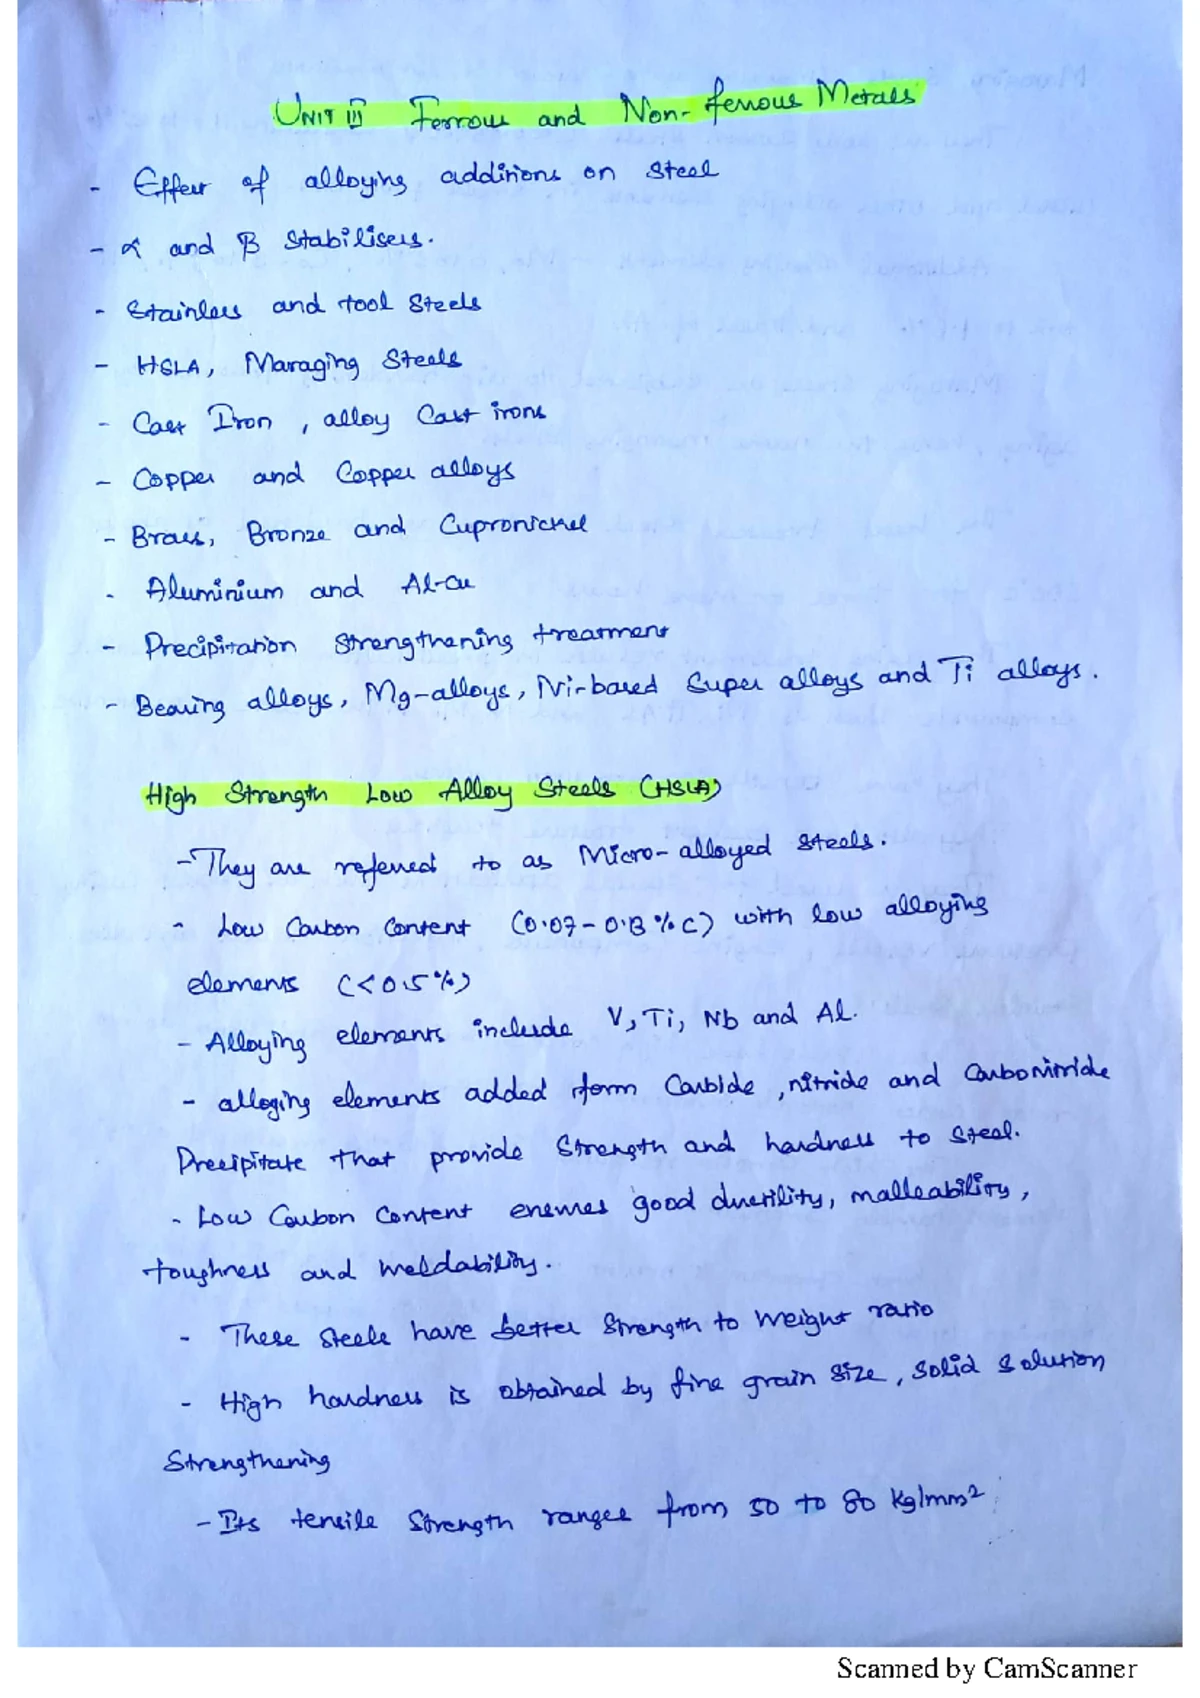 UNIT III Ferrous and Non-ferrous Metals
- Effect of alloying additions on Steel
- α and β Stabilisers.
- Stainless and tool Steels
- HSLA, Maraging Steels
- Cast Iron, alloy Cast irons
- Copper and Copper alloys
- Brass, Bronze and Cupronickel
- Aluminium and Al-Cu
- Precipitation Strengthening treatment
- Bearing alloys, Mg-alloys, Ni-based Super alloys and Ti alloys.
High Strength Low Alloy Steels (HSLA)
- They are referred to as Micro-alloyed steels.
- Low Carbon Content (0.07-0.13 % C) with low alloying
elements (<0.5%)
- Alloying elements include V, Ti, Nb and Al.
- alloging elements added form Carbide, nitride and Carbonitride
Precipitate that provide Strength and hardness to Steal.
- Low Carbon Content ensures good ductility, malleability,
toughness and weldability.
- These Steels have better Strength to weight ratio
- High hardness is obtained by fine grain size, Solid Solution
Strengthening
- Its tensile Strength ranges from 50 to 80 Kg/mm²
Scanned by CamScanner